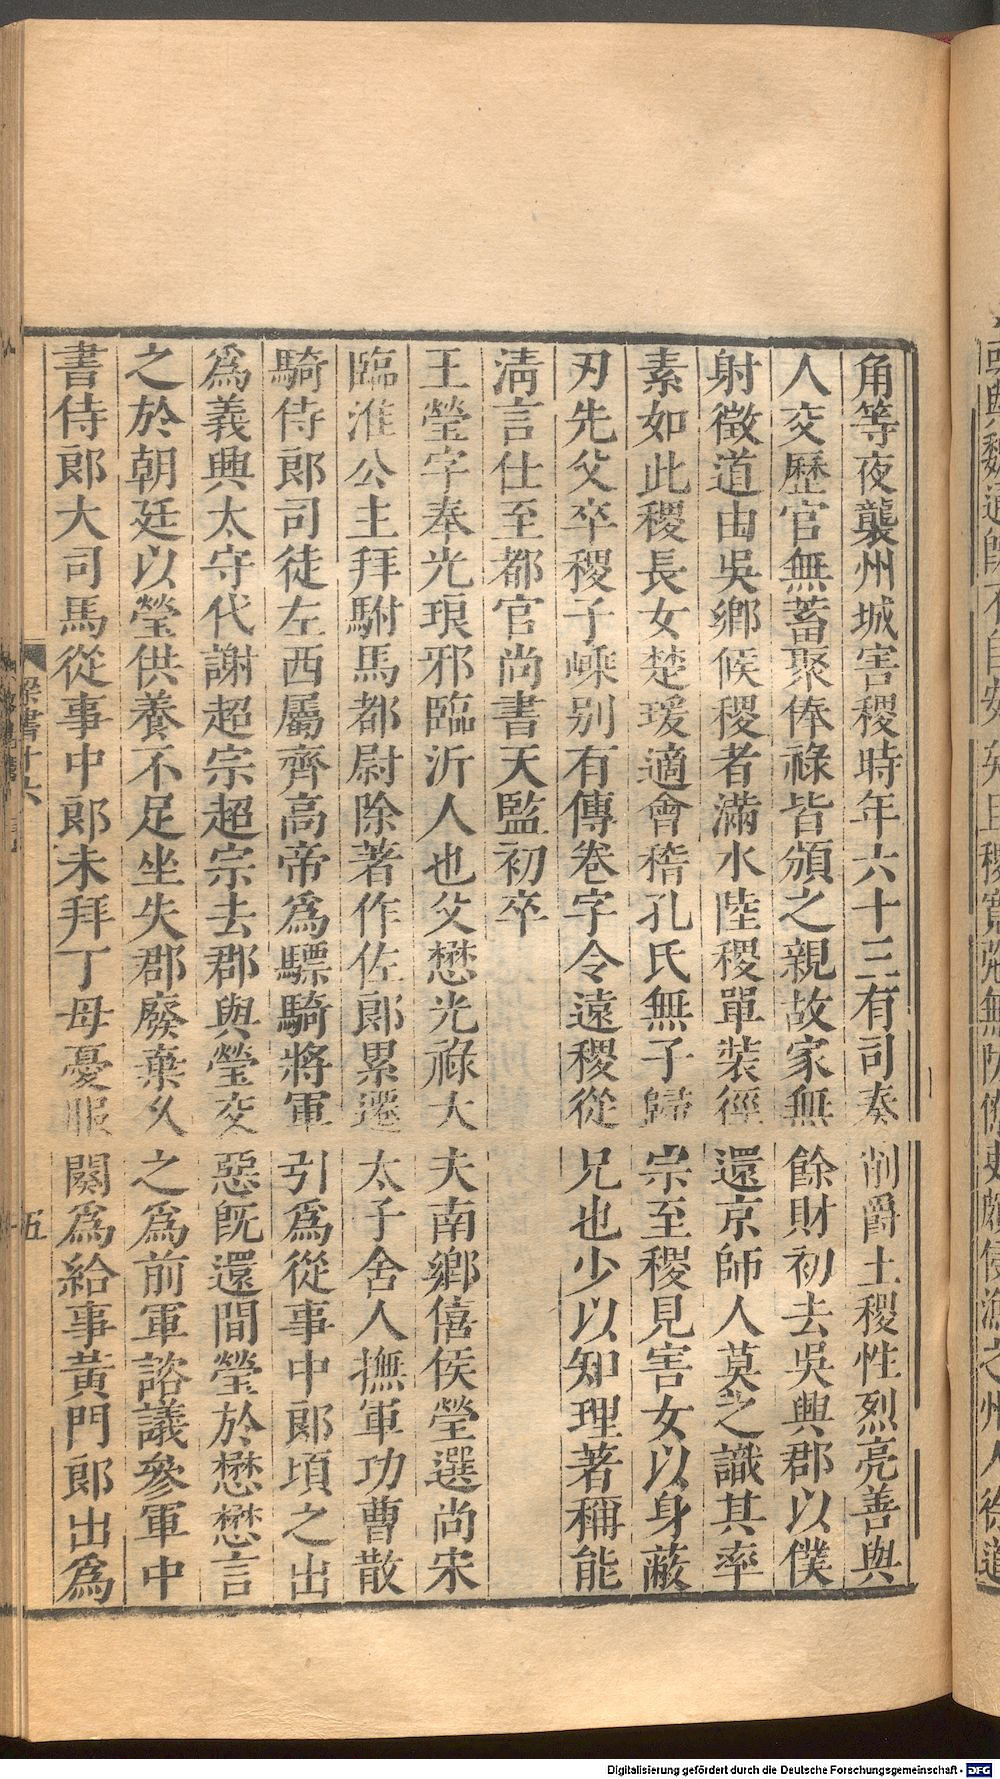 角等夜襲州城害稷時年六十三有司奏削爵土稷性烈亮善與
人交歷官無蓄聚俸祿皆頒之親故家無餘財初去吳興郡以僕
射徵道由吳鄉候稷者滿水陸稷單裝徑還京師人莫之識其率
素如此稷長女楚瑗適會稽孔氏無子歸宗至稷見害女以身蔽
刃先父卒稷子嵊别有傳卷字令遠稷從兄也少以知理著稱能
淸言仕至都官尚書天監初卒
王瑩字奉光琅邪臨沂人也父懋光祿大夫南鄉僖侯瑩選尚宋
臨淮公主拜駙馬都尉除著作佐郎累遷太子舍人撫軍功曹散
騎侍郎司徒左西屬齊高帝爲驃騎將軍引爲從事中郎頃之出
爲義興太守代謝超宗超宗去郡與瑩交惡旣還間瑩於懋懋言
之於朝廷以瑩供養不足坐失郡廢棄乆之爲前軍諮議參軍中
書侍郎大司馬從事中郎未拜丁母憂服闋爲給事黃門郎出爲
梁書十六
五
Digitalisierung gefördert durch die Deutsche Forschungsgemeinschaft - DFG